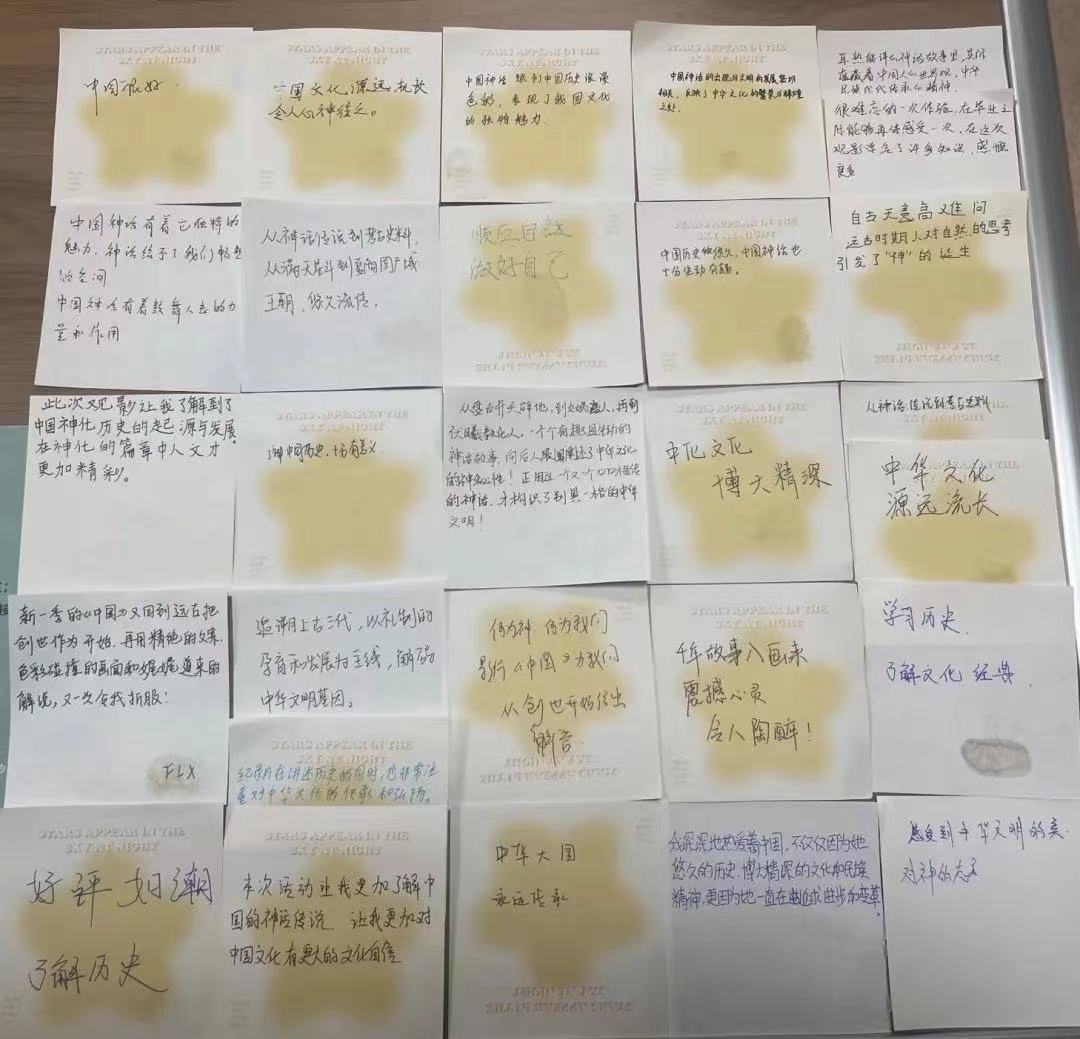 STARS APPEAR IN THE
SKY AT NIGHT
中国很好
STARS APPEAR IN THE
SKY AT NIGHT
中国文化,源远流长
令人心神往之。
STARS APPEAR IN THE
SKY AT NIGHT
中国神话赋予中国历史浪漫
色彩,表现了我国文化
的独特魅力.
STARS APPEAR IN THE
SKY AT NIGHT
中国神话的出现与文明的发展紧切
相关,反映了中华文化的繁荣与辉煌
之处.
耳熟能详的神话故事里,
蕴藏着中国人的世界观,中华
民族代代传承的精神.
很难忘的一次体验,在毕业之
际能够再体感受一次,在这次
观影学会了许多知识,感慨
良多
中国神话有着它独特的
魅力,神话给予了我们畅想
的空间
中国神话有着鼓舞人志的力
量和作用
从神话传说到考古史料,
从满天星斗到夏商周广域
王朝,悠久流传.
顺应自然
做好自己
中国历史悠久,中国神话也
十分生动有趣。
自古天意高难问
远古时期人对自然的思考
引发了“神”的诞生
此次观影让我了解到了
中国神化历史的起源与发展
在神化的篇章中人文才
更加精彩。
了解中国历史,十分有意义.
从盘古开天辟地,到女娲造人,再到
伏羲教化人,一个个有趣且生动的
神话故事,向后人展阐述了中华文化
的神秘性!正因这一个又一个口口相传
的神话,才构识了别具一格的中华
文明!
中化文化
博大精深
从神话传说到考古史料
中华文化
源远流长
新一季的《中国》又回到远古把
创世作为开始,再用精绝的文案,
色彩碰撞的画面和娓娓道来的
解说,又一次令我折服!
FLX
追溯上古三代,以礼制的
孕育和发展为主线,解码
中华文明基因。
STARS APPEAR IN THE
SKY AT NIGHT
纪录片在讲述历史的同时,也非常注
重对中华文化的传承和弘扬。
何为神 何为我们
影片《中国》为我们
从创世开始给出
解答.
STARS APPEAR IN THE
SKY AT NIGHT
千年故事入画来
震撼心灵
令人陶醉!
学习历史.
了解文化经典.
STARS APPEAR IN THE
SKY AT NIGHT
好评如潮
了解历史
STARS APPEAR IN THE
SKY AT NIGHT
本次活动让我更加了解中
国的神话传说.让我更加对
中国文化有更大的文化自信
中华大国
永远传承
我深深地热爱着中国,不仅仅因为她
悠久的历史,博大精深的文化和民族
精神,更因为她一直在追求进步和变革。
感受到中华文明的美.
对神的态度